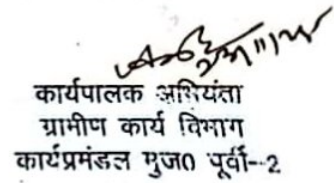 कार्यपालक अभियंता
ग्रामीण कार्य विभाग
कार्यप्रमंडल मुज0 पूर्वी--2